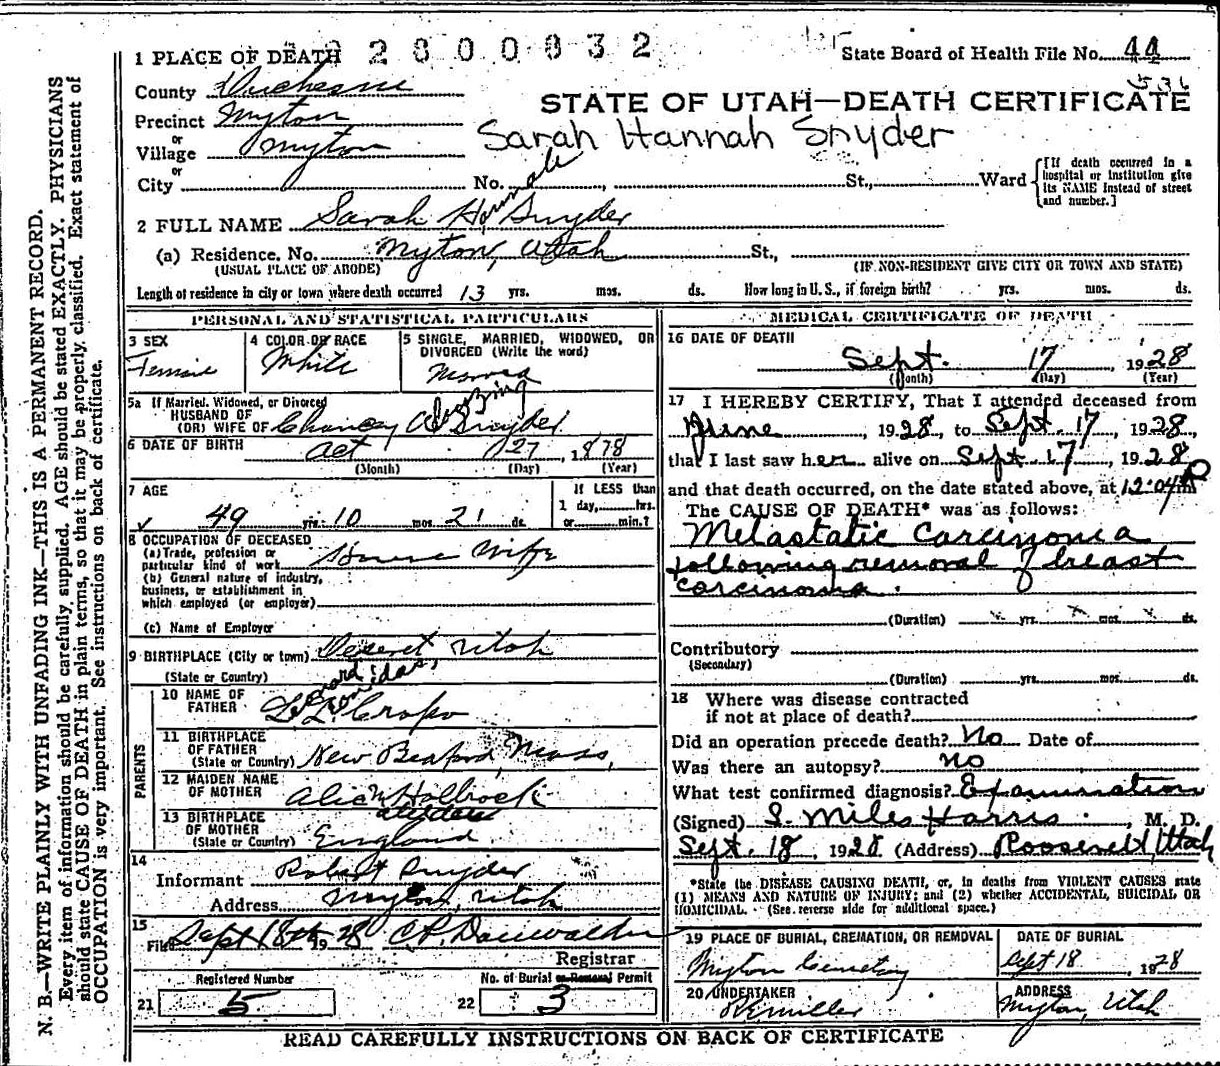 N. B.—WRITE PLAINLY WITH UNFADING INK—THIS IS A PERMANENT RECORD.
Every item of information should be carefully supplied. AGE should be stated EXACTLY. PHYSICIANS
should state CAUSE OF DEATH in plain terms, so that it may be properly classified. Exact statement of
OCCUPATION is very important. See instructions on back of certificate.
1 PLACE OF DEATH 2800832
State Board of Health File No. 44
536
County Duchesne
STATE OF UTAH—DEATH CERTIFICATE
Precinct Myton
Sarah Hannah Snyder
or
Village Myton
or
City No. St., Ward
[If death occurred in a
hospital or institution give
its NAME instead of street
and number.]
2 FULL NAME Sarah Hannah Snyder
(a) Residence. No. Myton, Utah St.,
(USUAL PLACE OF ABODE) (IF NON-RESIDENT GIVE CITY OR TOWN AND STATE)
Length of residence in city or town where death occurred 13 yrs. mos. ds. How long in U. S., if foreign birth? yrs. mos. ds.
PERSONAL AND STATISTICAL PARTICULARS
3 SEX
Female
4 COLOR OR RACE
White
5 SINGLE, MARRIED, WIDOWED, OR
DIVORCED (Write the word)
5a If Married, Widowed, or Divorced
HUSBAND OF
(OR) WIFE OF Chancey Snyder
6 DATE OF BIRTH Oct 27, 1878
(Month) (Day) (Year)
7 AGE
49 yrs. 10 mos. 21 ds.
If LESS than
1 day, hrs.
or min.?
8 OCCUPATION OF DECEASED
(a) Trade, profession or
particular kind of work House Wife
(b) General nature of industry,
business, or establishment in
which employed (or employer)
(c) Name of Employer
9 BIRTHPLACE (City or town) Deseret Utah
(State or Country)
PARENTS
10 NAME OF
FATHER L. L. Cropo
11 BIRTHPLACE
OF FATHER
(State or Country) New Bedford, Mass,
12 MAIDEN NAME
OF MOTHER Holbrock
13 BIRTHPLACE
OF MOTHER
(State or Country) England
14
Informant Robert Snyder
Address Myton, Utah
15
Filed Sept 18th 1928
Registrar
Registered Number
21 5
No. of Burial or Removal Permit
22 3
MEDICAL CERTIFICATE OF DEATH
16 DATE OF DEATH
Sept. 17 1928
(Month) (Day) (Year)
17 I HEREBY CERTIFY, That I attended deceased from
June, 1928, to Sept. 17, 1928,
that I last saw her alive on Sept. 17, 1928
and that death occurred, on the date stated above, at 12:04 P m
The CAUSE OF DEATH* was as follows:
Metastatic Carcinoma
following removal of breast
carcinoma.
(Duration) yrs. mos. ds.
Contributory
(Secondary)
(Duration) yrs. mos. ds.
18 Where was disease contracted
if not at place of death?
Did an operation precede death? No Date of
Was there an autopsy? no
What test confirmed diagnosis? Examination
(Signed) S. Miles Harris, M. D.
Sept. 18, 1928 (Address) Roosevelt, Utah
*State the DISEASE CAUSING DEATH, or, in deaths from VIOLENT CAUSES state
(1) MEANS AND NATURE OF INJURY; and (2) whether ACCIDENTAL, SUICIDAL OR
HOMICIDAL. (See reverse side for additional space.)
19 PLACE OF BURIAL, CREMATION, OR REMOVAL
Myton Cemetery
DATE OF BURIAL
Sept 18, 1928
20 UNDERTAKER
ADDRESS
Myton, Utah
READ CAREFULLY INSTRUCTIONS ON BACK OF CERTIFICATE